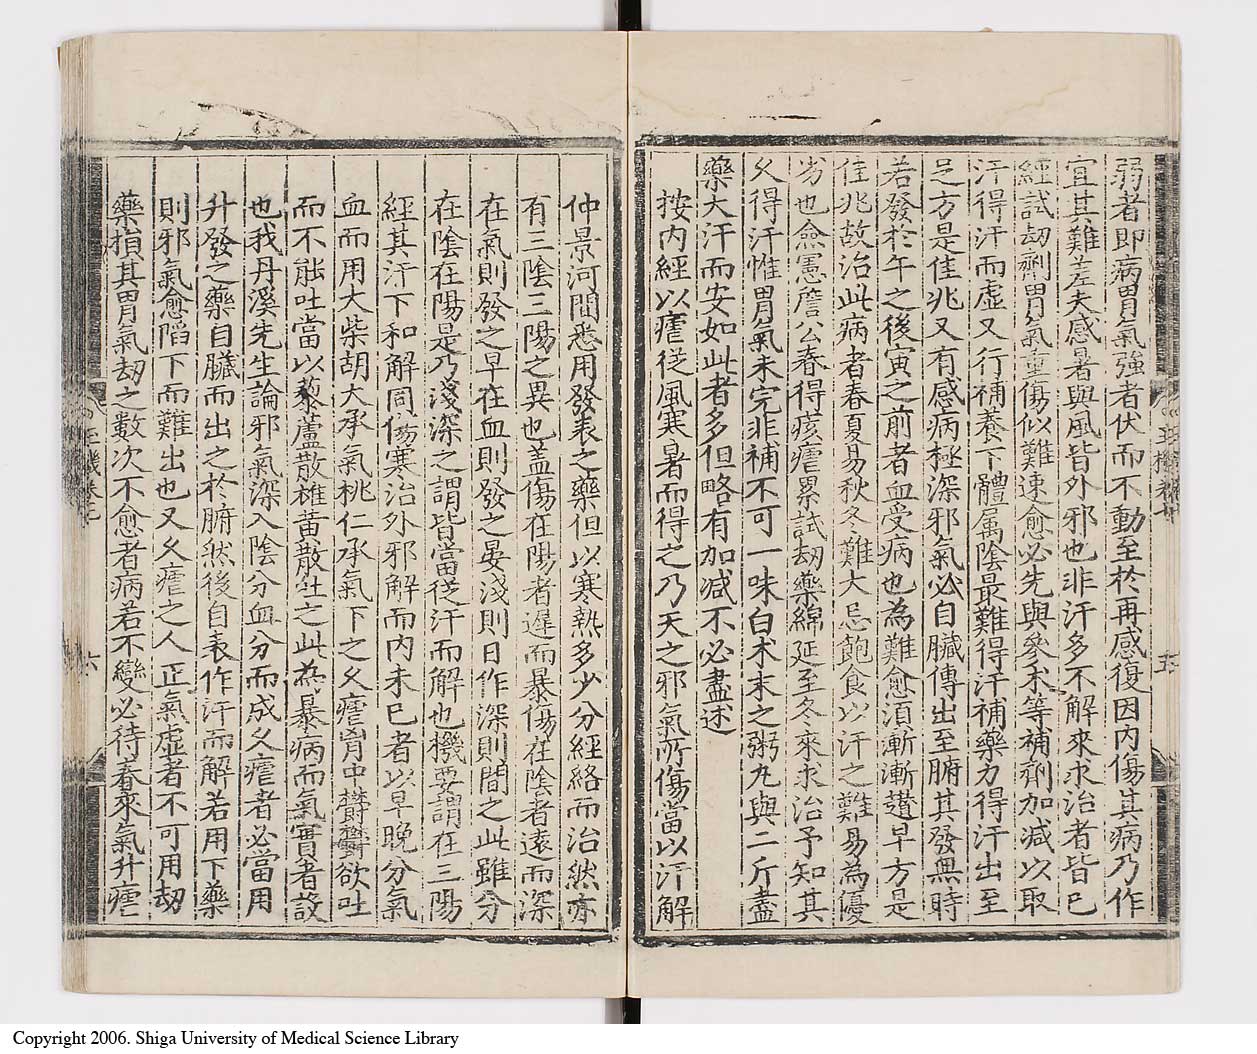 弱者即病胃氣強者伏而不動至於再感復因内傷其病乃作
宜其難差夫感暑與風皆外邪也非汗多不解來求治者皆已
經試刼劑胃氣重傷似難速愈必先與參术等補劑加减以取
汗得汗而虛又行補養下體属陰最難得汗補藥力得汗出至
足方是佳兆又有感病極深邪氣必自臟傳出至腑其發無時
若發於午之後寅之前者血受病也為難愈湏漸漸趲早方是
佳兆故治此病者春夏易秋冬難大忌飽食以汗之難易為優
劣也僉憲詹公春得痎瘧累試刼藥綿延至冬來求治予知其
乆得汗惟胃氣未完非補不可一味白术末之粥丸與二斤盡
藥大汗而安如此者多但略有加减不必盡述
按内經以瘧從風寒暑而得之乃天之邪氣所傷當以汗解
仲景河間悉用發表之藥但以寒熱多少分經絡而治然亦
有三陰三陽之異也盖傷在陽者遲而暴傷在陰者遠而深
在氣則發之早在血則發之晏淺則日作深則間之此雖分
在陰在陽是乃淺深之謂皆當從汗而解也機要謂在三陽
經其汗下和解同傷寒治外邪解而内未已者以早晚分氣
血而用大柴胡大承氣桃仁承氣下之乆瘧胷中欝欝欲吐
而不能吐當以藜蘆散雄黃散吐之此為暴病而氣實者設
也我丹溪先生論邪氣深入陰分血分而成乆瘧者必當用
升發之藥自臟而出之於腑然後自表作汗而解若用下藥
則邪氣愈陷下而難出也又乆瘧之人正氣虛者不可用刼
藥損其胃氣刼之數次不愈者病若不變必待春來氣升瘧
五
六
Copyright 2006. Shiga University of Medical Science Library